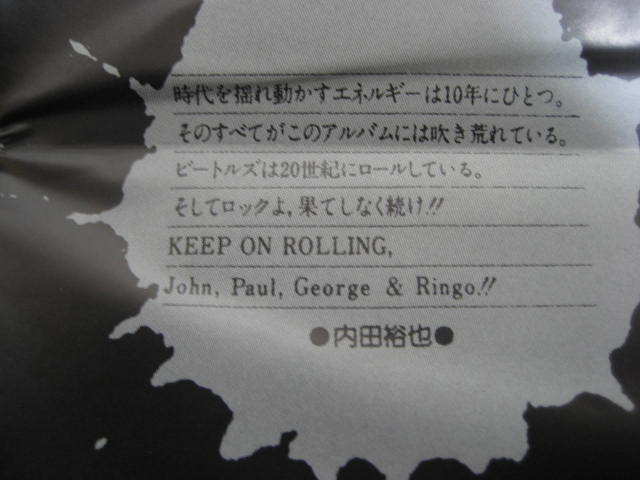 時代を揺れ動かすエネルギーは10年にひとつ。
そのすべてがこのアルバムには吹き荒れている。
ビートルズは20世紀にロールしている。
そしてロックよ,果てしなく続け!!
KEEP ON ROLLING,
John, Paul, George & Ringo!!
●内田裕也●